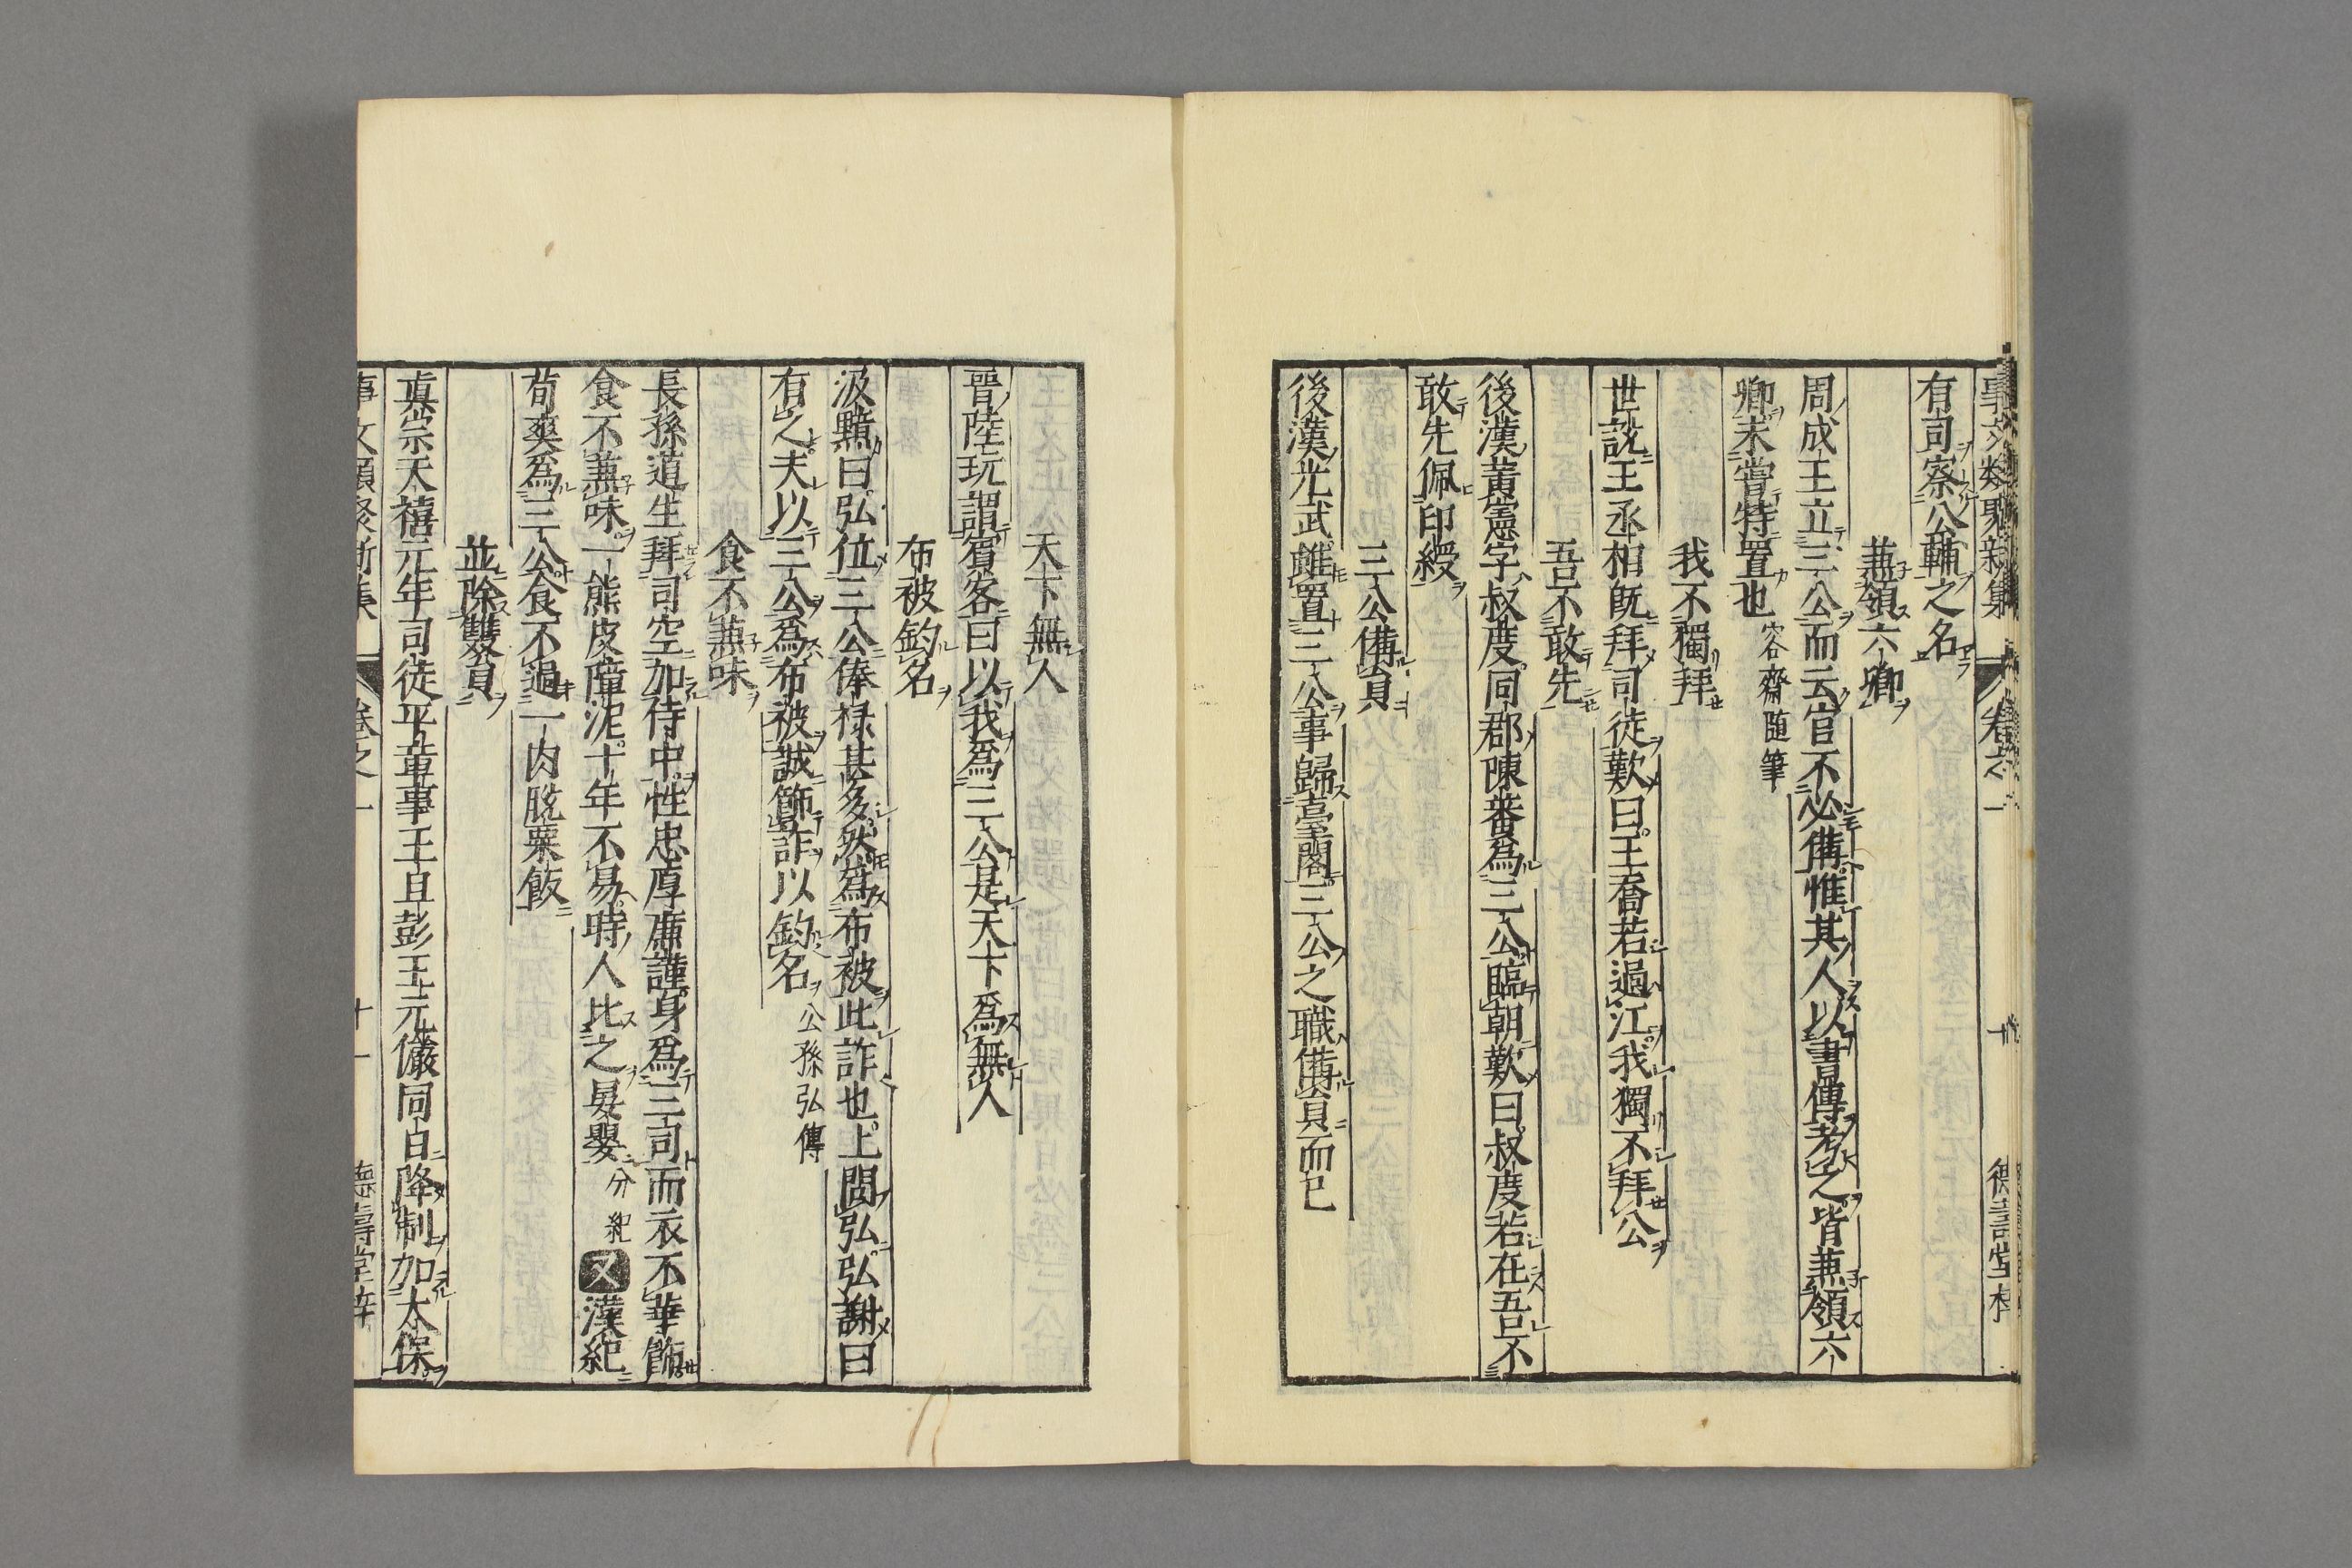 事文類聚新集 卷之一 德壽堂梓
有司察公輔之名
兼領六卿
周成王立三公而云官不必備惟其人以書傳考之皆兼領六
卿未嘗特置也 容齋随筆
我不獨拜
世說王丞相既拜司徒歎曰王喬若過江我獨不拜公
吾不敢先
後漢黃憲字叔度同郡陳蕃爲三公臨朝歎曰叔度若在吾不
敢先佩印綬
三公備員
後漢光武雖置三公事歸臺閣三公之職備員而已
天下無人
晉陸玩謂賓客曰以我爲三公是天下爲無人
布被釣名
汲黯曰弘位三公俸祿甚多然爲布被此詐也上問弘弘謝曰
有之夫以三公爲布被誠飾詐以釣名 公孫弘傳
食不兼味
長孫道生拜司空加侍中性忠厚廉謹身爲三司而衣不華飾
食不兼味一熊皮障泥十年不易時人比之晏嬰 分紀 又漢紀
荀爽爲三公食不過一肉脫粟飯
並除雙員
真宗天禧元年司徒平章事王旦彭王元儼同日降制加太保
事文類聚新集 卷之一 十一 德壽堂梓